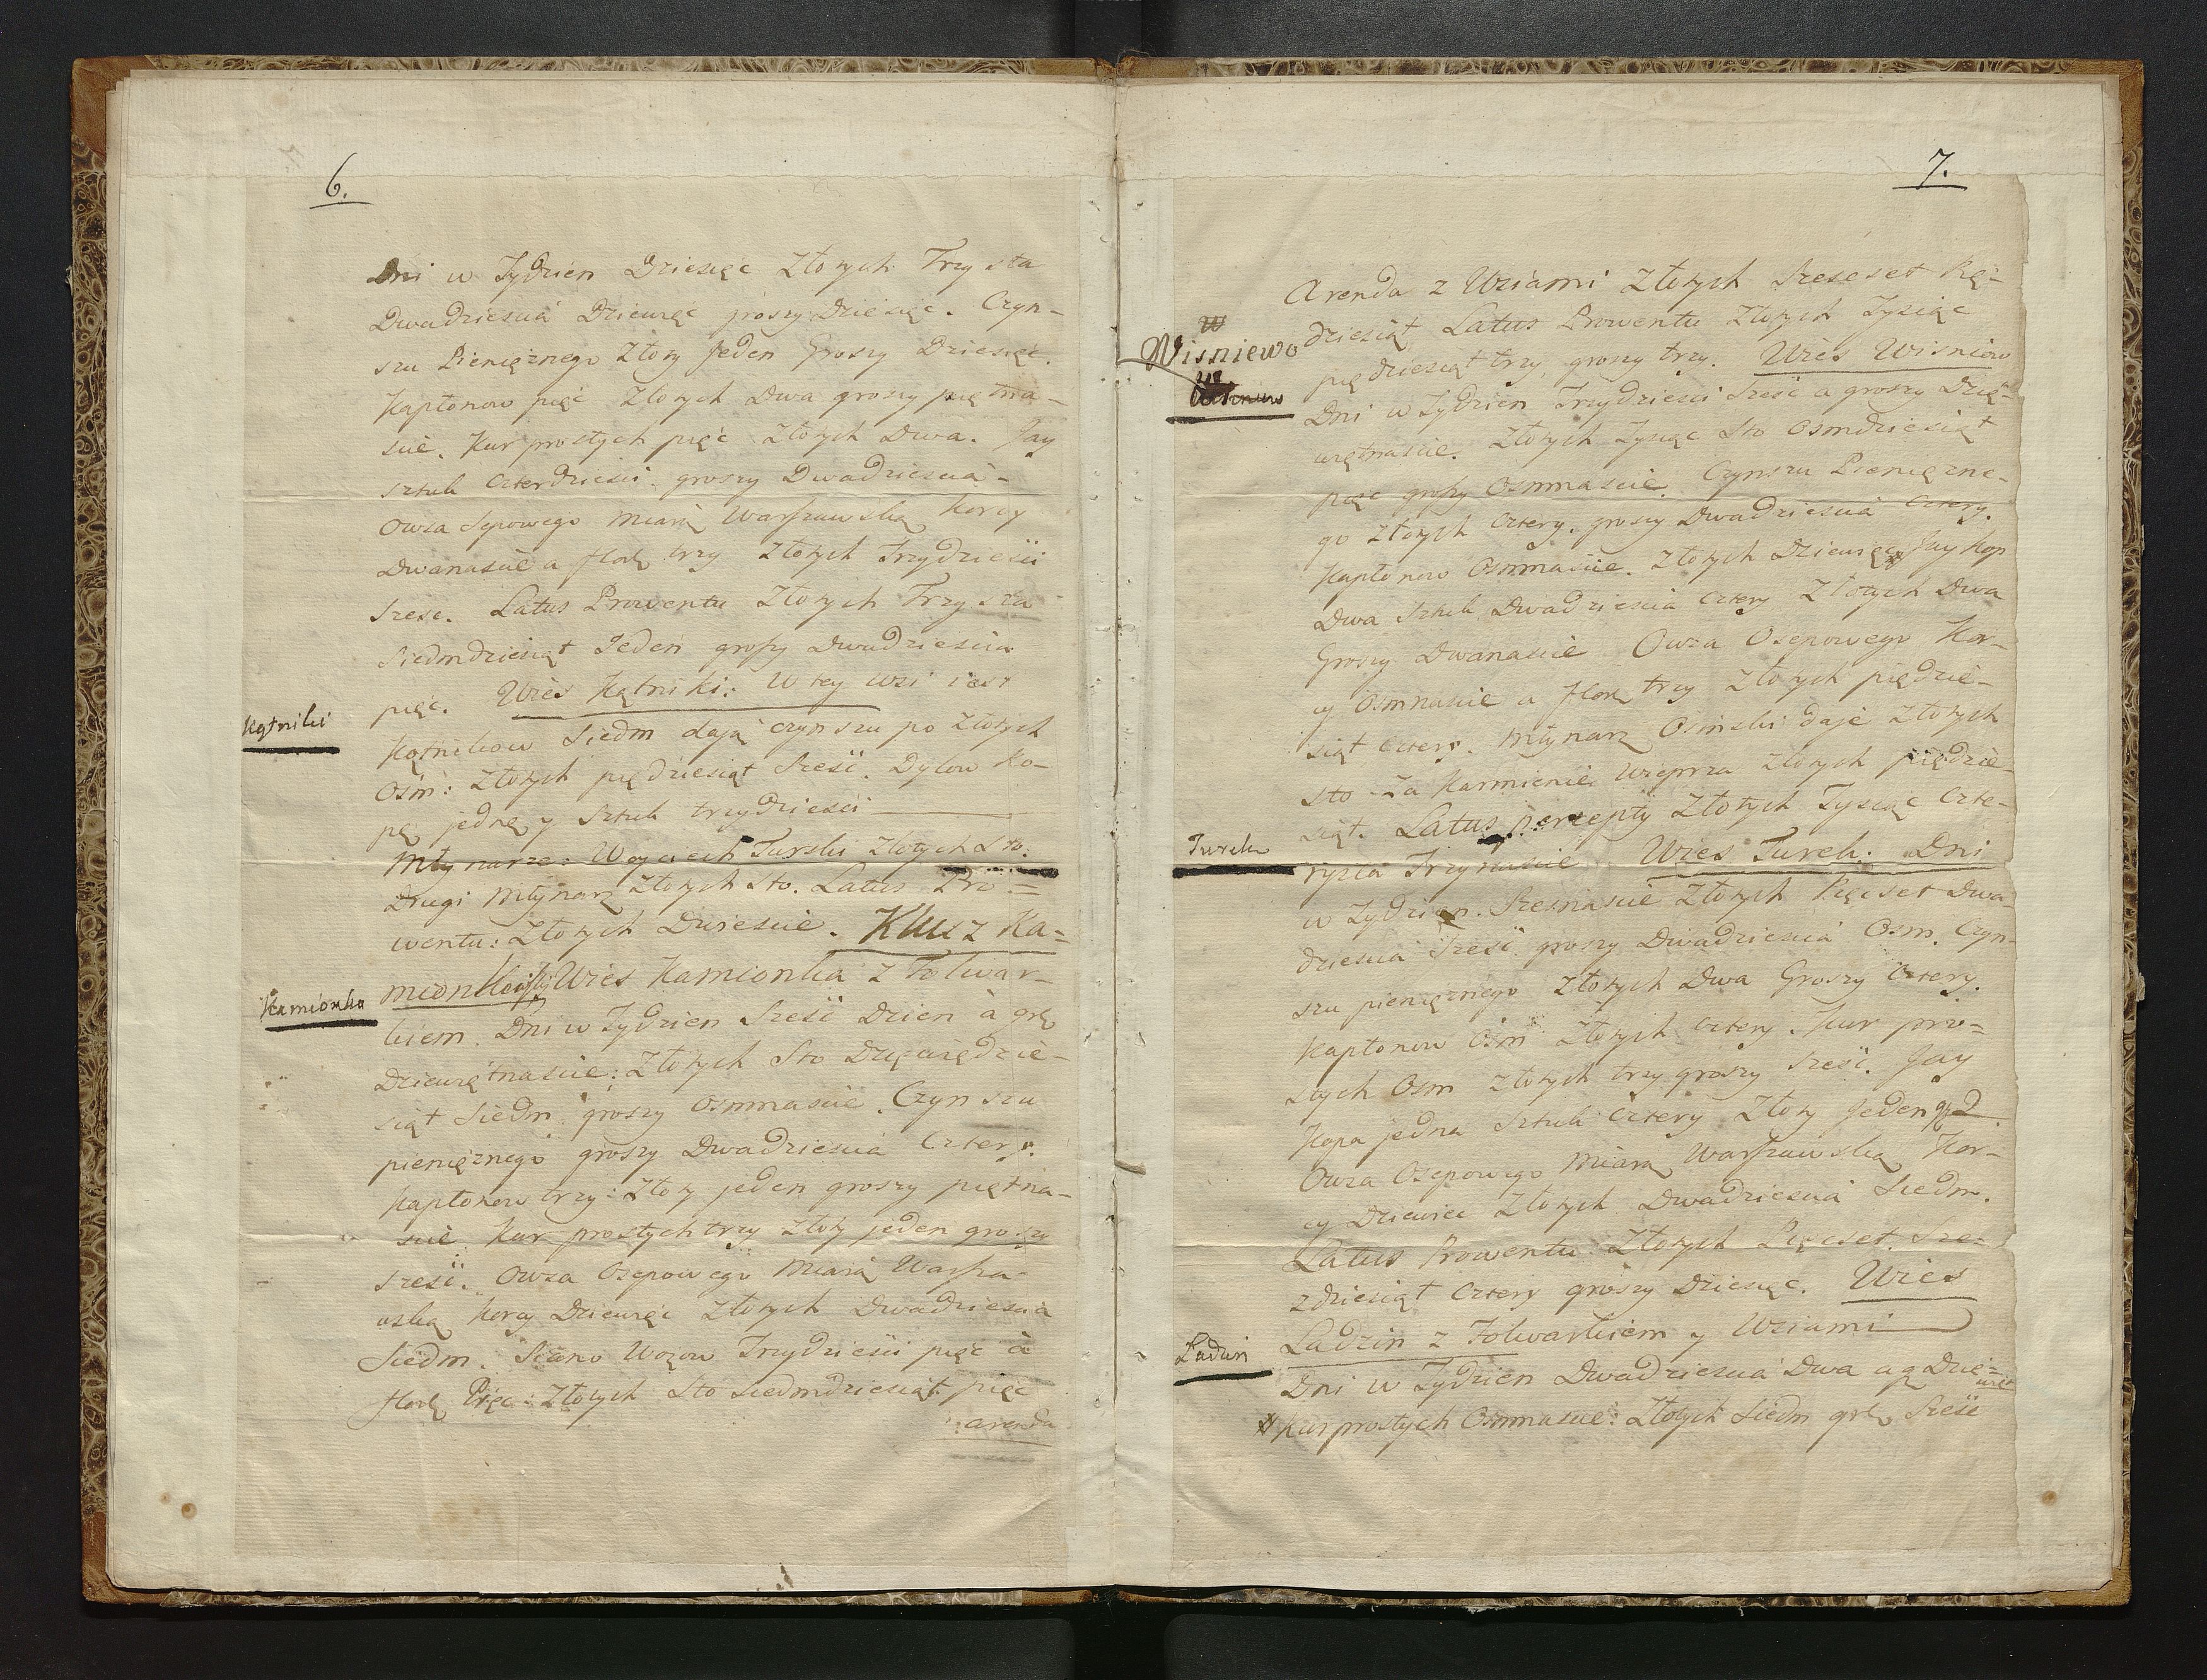 6.
Dni w Tydzien Dziesięc Złotych Trzysta
Dwadziescia Dziewięć groszy Dziesięc. Czyn-
szu Pieniężnego Złoty Jeden Groszy Dziesięć.
Kapłonow pięć Złotych Dwa groszy piętna-
scie. Kur prostych pięć Złotych Dwa. Jay
sztuk Czterdziesci groszy Dwadziescia -
Owsa Sepowego miarą Warszawską Korcy
Dwanascie a flor trzy Złotych Trzydziesci
Szesc. Latus Prowentu Złotych Trzysta
Siedmdziesiąt Jeden groszy Dwadziescia
pięć. Wies Kątniki: W tey Wsi iest
Kątniki
Kątnikow Siedm dają czynszu po Złotych
Osm: Złotych piędziesiąt Szesć. Dylow Ko-
pę jednę y Sztuk trzydziesci
Młynarze: Woyciech Turski Złotych Sto.
Drugi Młynarz Złotych Sto. Latus Pro=
wentu: Złotych Dwiescie. Klucz Ka=
mionkowski Wies Kamionka z Folwar-
Kamionka
kiem. Dni w Tydzien Szesć Dzien à gr
Dziewiętnascie: Złotych Sto Dziewiędzie-
siąt Siedm groszy Osmnascie. Czynszu
pieniężnego groszy Dwadziescia Cztery.
Kapłonow trzy: Złoty jeden groszy piętna-
scie Kur prostych trzy Złoty jeden groszy
Szesć. Owsa Osepowego Miarą Warsza-
wską Korcy Dziewięć Złotych Dwadziescia
Siedm. Siano Wozow Trzydziesci pięć à
flor Pięc: Złotych Sto siedmdziesiąt pięć
arenda
7.
Arenda z Wsiami Złotych Szescset Pię-
dziesiąt Latus Prowentu Złotych Tysiąc
W
Wisniewo
pięдziesiąt trzy, groszy trzy. Wies Wisniewo
Dni w Tydzien Trzydziesci Szesć a groszy Dzie-
więtnascie. Złotych Tysiąc Sto Osmdziesiąt
pięc groszy Osmnascie. Czynszu Pieniężne-
go Złotych Cztery. groszy Dwadziescia Cztery.
Kapłonow Osmnascie. Złotych Dziewięć # Jay Kop
Dwa Sztuk Dwadziescia Cztery Złotych Dwa
Groszy Dwanascie Owsa Osepowego Kor-
cy Osmnascie a flor trzy Złotych piędzie-
siąt Cztery. Młynarz Osinski daje Złotych
Sto za Karmienie Wieprza Złotych piędzie-
siąt. Latus percepty Złotych Tysiąc Czte-
Turek
rysta Trzynascie Wies Turek. Dni
w Tydzien. Szesnascie Złotych Pięcset Dwa-
dziescia Szesć groszy Dwadziescia Osm. Czyn-
szu pieniężnego Złotych Dwa Groszy Cztery.
Kapłonow Osm Złotych Cztery. Kur pro=
stych Osm Złotych trzy groszy Szesć. Jay
Kopa jedna Sztuk Cztery Złoty Jeden gr 2
Owsa Osepowego Miarą Warszawską Kor-
cy Dziewiec Złotych Dwadziescia Siedm.
Latus Prowentu Złotych Pięcset Sze-
zdziesiąt Cztery groszy Dziesięc. Wies
Ladzin z Folwarkiem y Wsiami
Ladzin
Dni w Tydzien Dwadziescia Dwa a g Dzie=
więt
# Kur prostych Osmnascie: Złotych Siedm gr Szesć